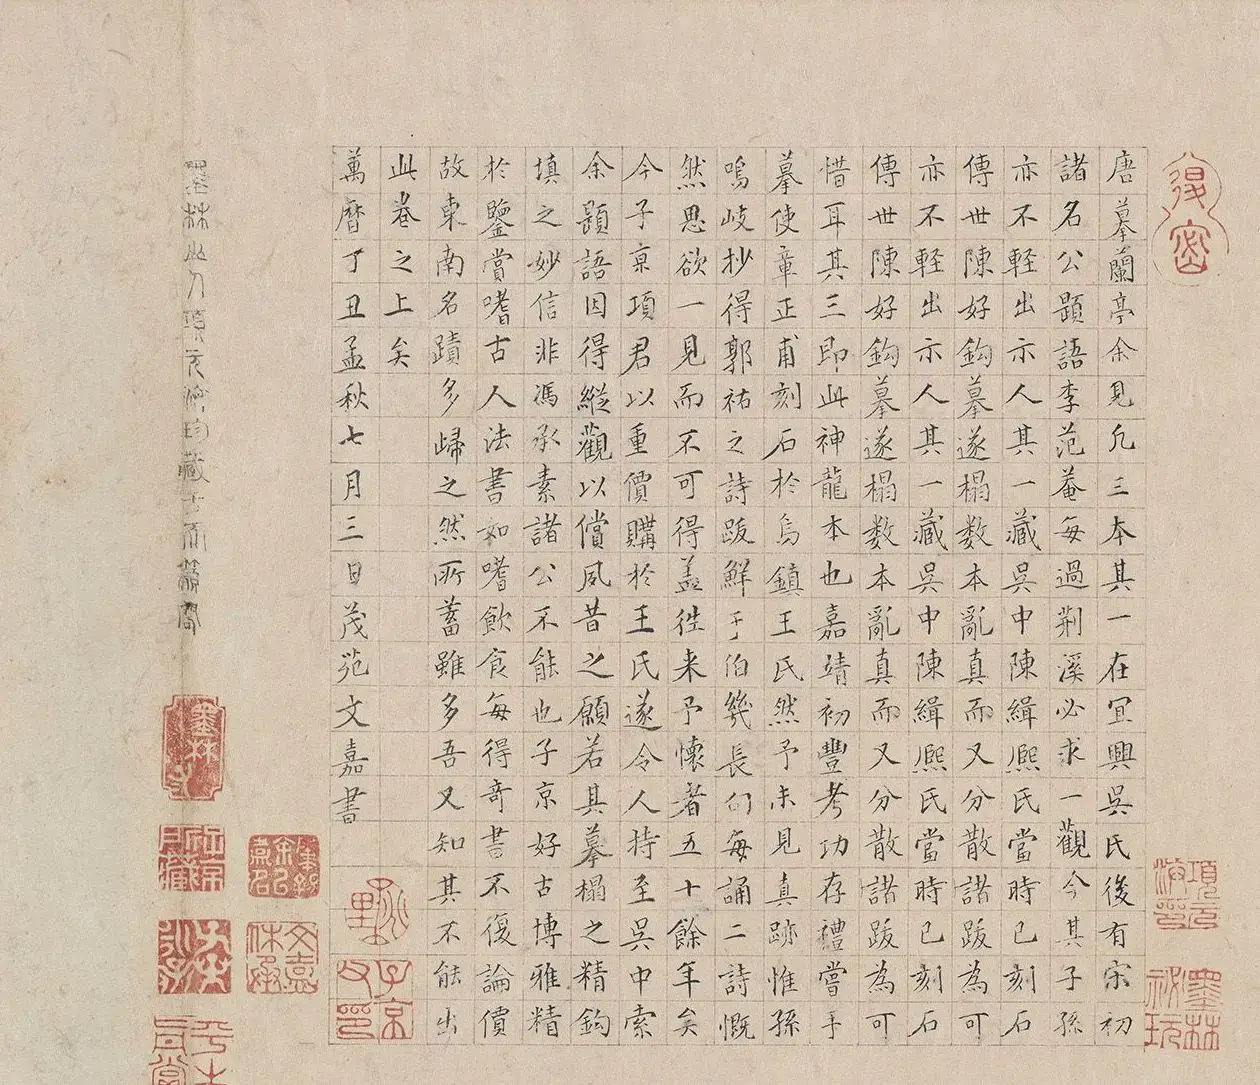 項元汴印
墨林祕玩
唐摹蘭亭余見凢三本其一在宜興吳氏後有宋初
諸名公題語李范菴每過荆溪必求一觀今其子孫
亦不軽出示人其一藏吳中陳緝熈氏當時已刻石
傳世陳好鈎摹遂搨数本亂真而又分散諸跋為可
亦不軽出示人其一藏吳中陳緝熈氏當時已刻石
傳世陳好鈎摹遂搨数本亂真而又分散諸跋為可
惜耳其三即此神龍本也嘉靖初豐考功存禮嘗手
摹使章正甫刻石於烏鎮王氏然予未見真跡惟孫
鳴岐抄得郭祐之詩跋鮮于伯幾長句每誦二詩慨
然思欲一見而不可得盖徃来予懷者五十餘年矣
今子京項君以重價購於王氏遂令人持至吳中索
余題語因得縱觀以償夙昔之願若其摹搨之精鈎
填之妙信非馮承素諸公不能也子京好古博雅精
於鑒賞嗜古人法書如嗜飲食每得竒書不復論價
故東南名蹟多歸之然所蓄雖多吾又知其不能出
此卷之上矣
萬曆丁丑孟秋七月三日茂苑文嘉書
子京父印
文嘉休承
墨林山人項元汴珍藏